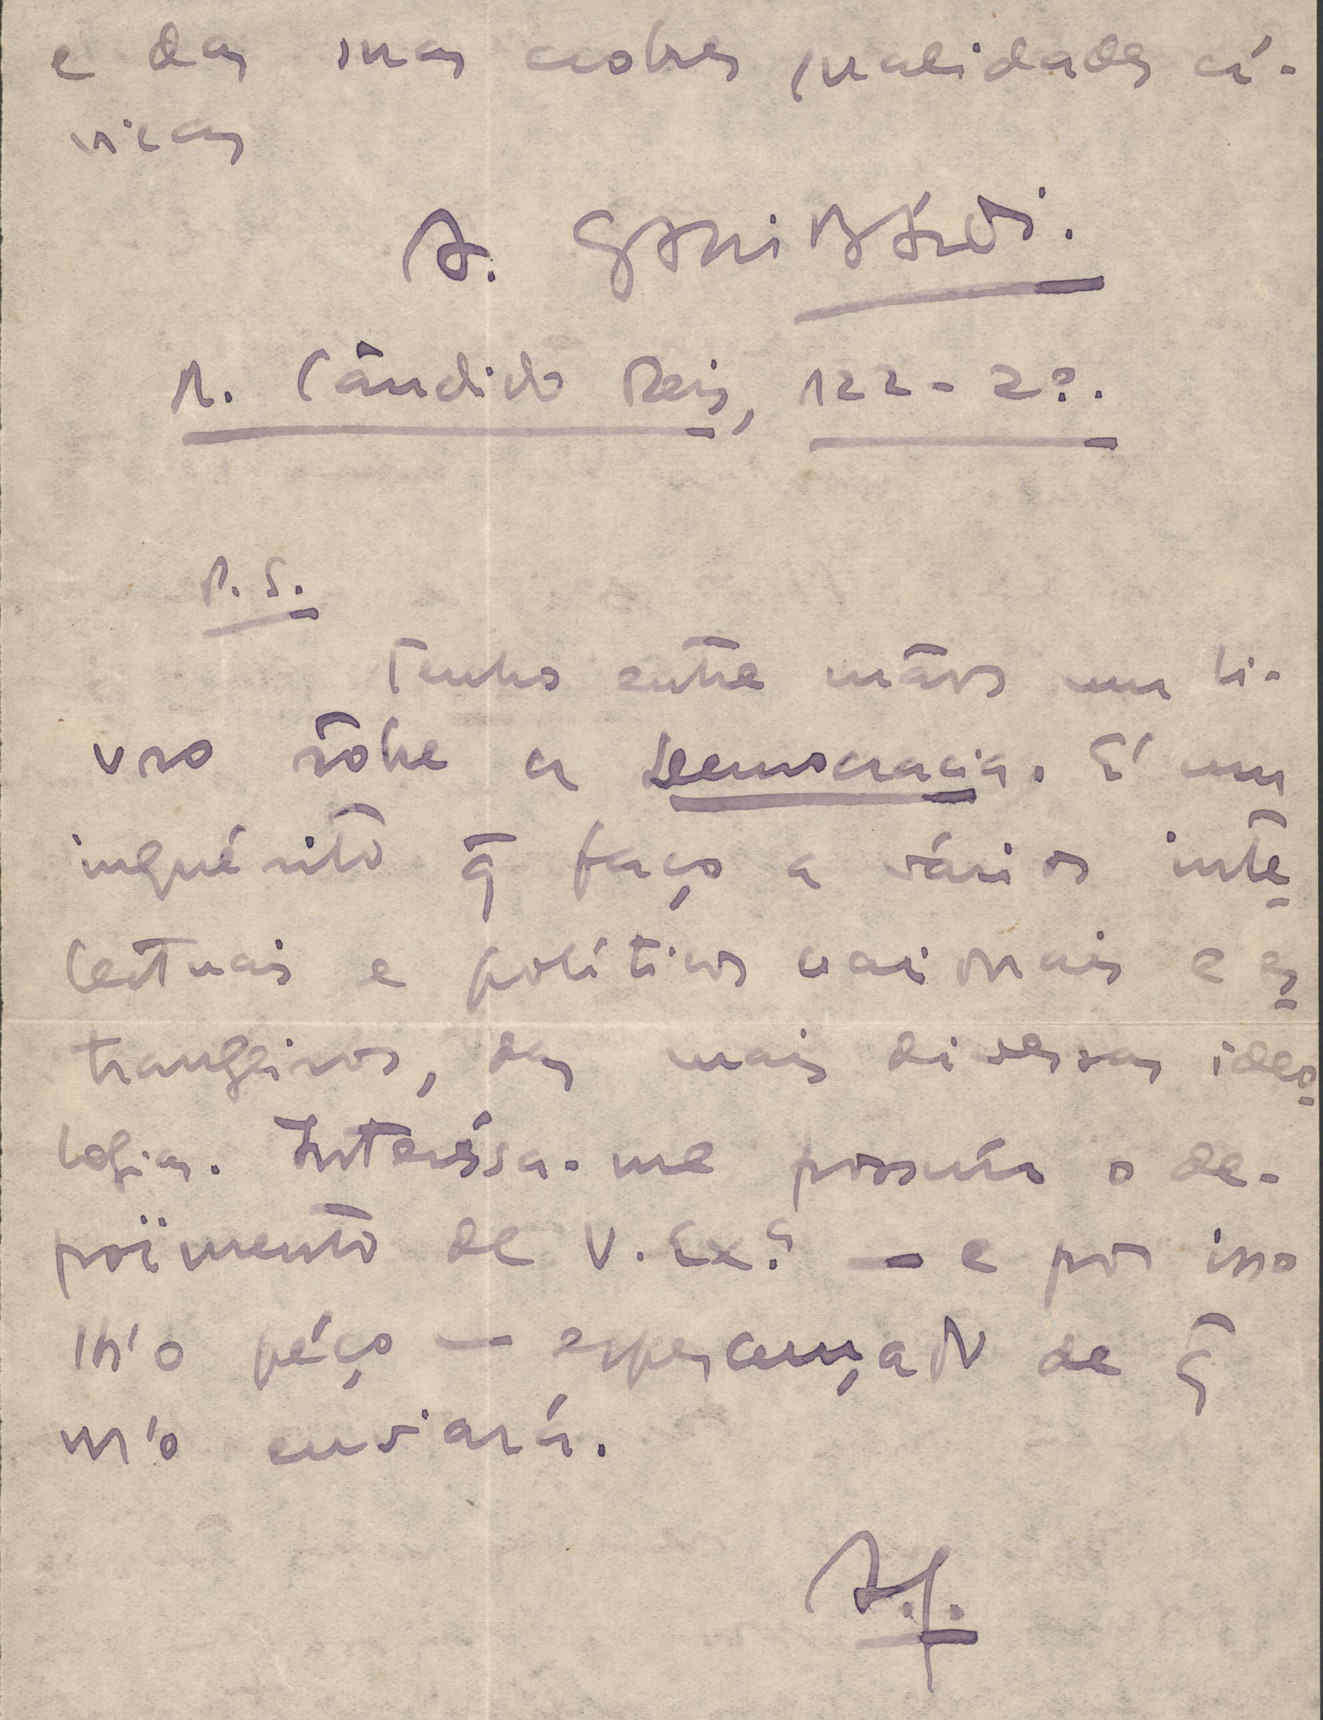 e das suas nobres qualidades cí-
vicas
A. Garibáldi.
R. Cândido Reis, 122-2º.
P.S.
Tenho entre mãos um li-
vro sôbre a Democracia. É um
inquérito q̃ faço a vários inte
lectuais e políticos nacionais e es
trangeiros, das mais diversas ideo
logias. Interéssa-me possuír o de-
poïmento de V. Exª — e por isso
lh'o péço — esperançado de q̃
m'o enviará.
A.G.